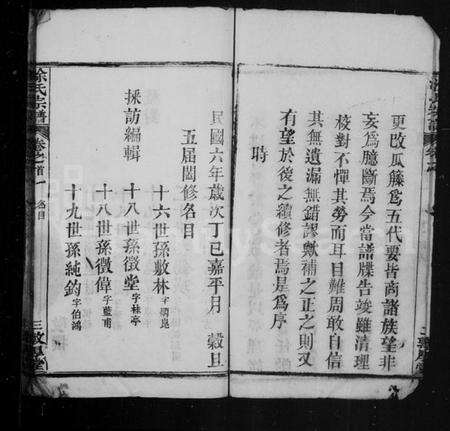 更改瓜藤為五代要皆商諸族望非
妄為臆斷焉今當譜牒告竣雖清理
校對不憚其勞而耳目難周敢自信
其無遺漏無錯謬歟補之正之則又
有望於後之續修者焉是為序
時
民國六年歲次丁巳嘉平月 穀旦
五届閤修名目
十六世孫敷林
採訪編輯
十八世孫徵堂字桂亭
十八世孫徵偉字藍甫
十九世孫純鈞字伯鴻
徐氏宗譜
卷之首
名目
三